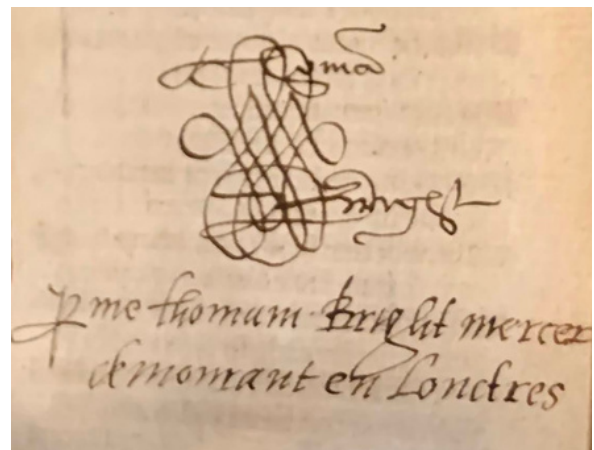 Thomã
Bright
p me thomam Bright mercer
demourant en Londres